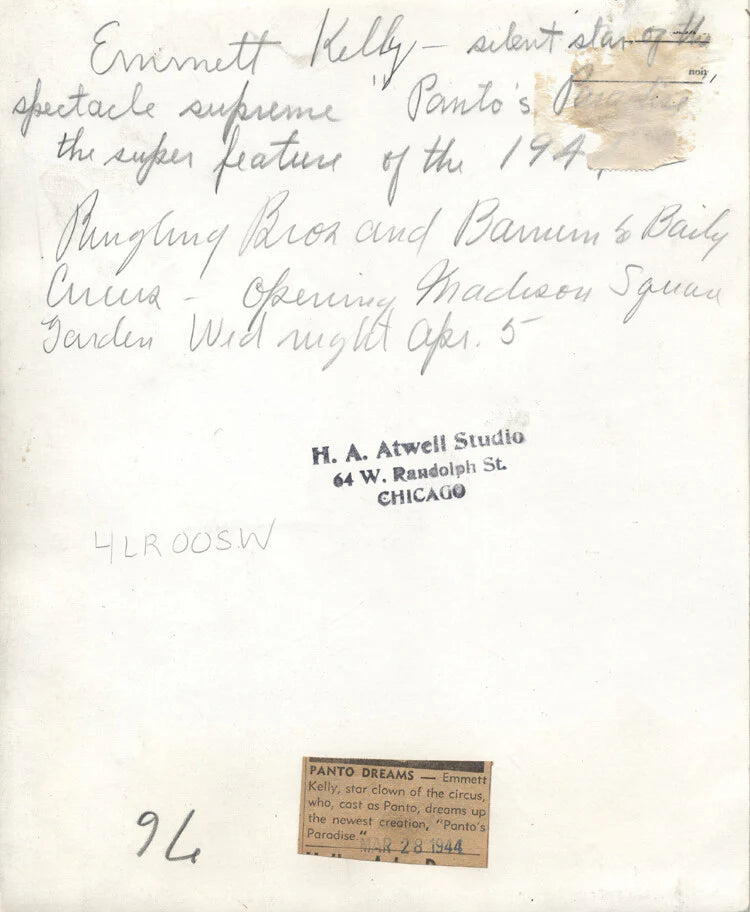 Emmett Kelly — silent star of the
noir,
spectacle supreme "Panto's Paradise
the super feature of the 194
Ringling Bros and Barnum & Baily
Circus — Opening Madison Square
Garden Wed night Apr. 5
H. A. Atwell Studio
64 W. Randolph St.
CHICAGO
4LR00SW
PANTO DREAMS — Emmett
Kelly, star clown of the circus,
who, cast as Panto, dreams up
the newest creation, "Panto's
Paradise."
MAR 28 1944
96